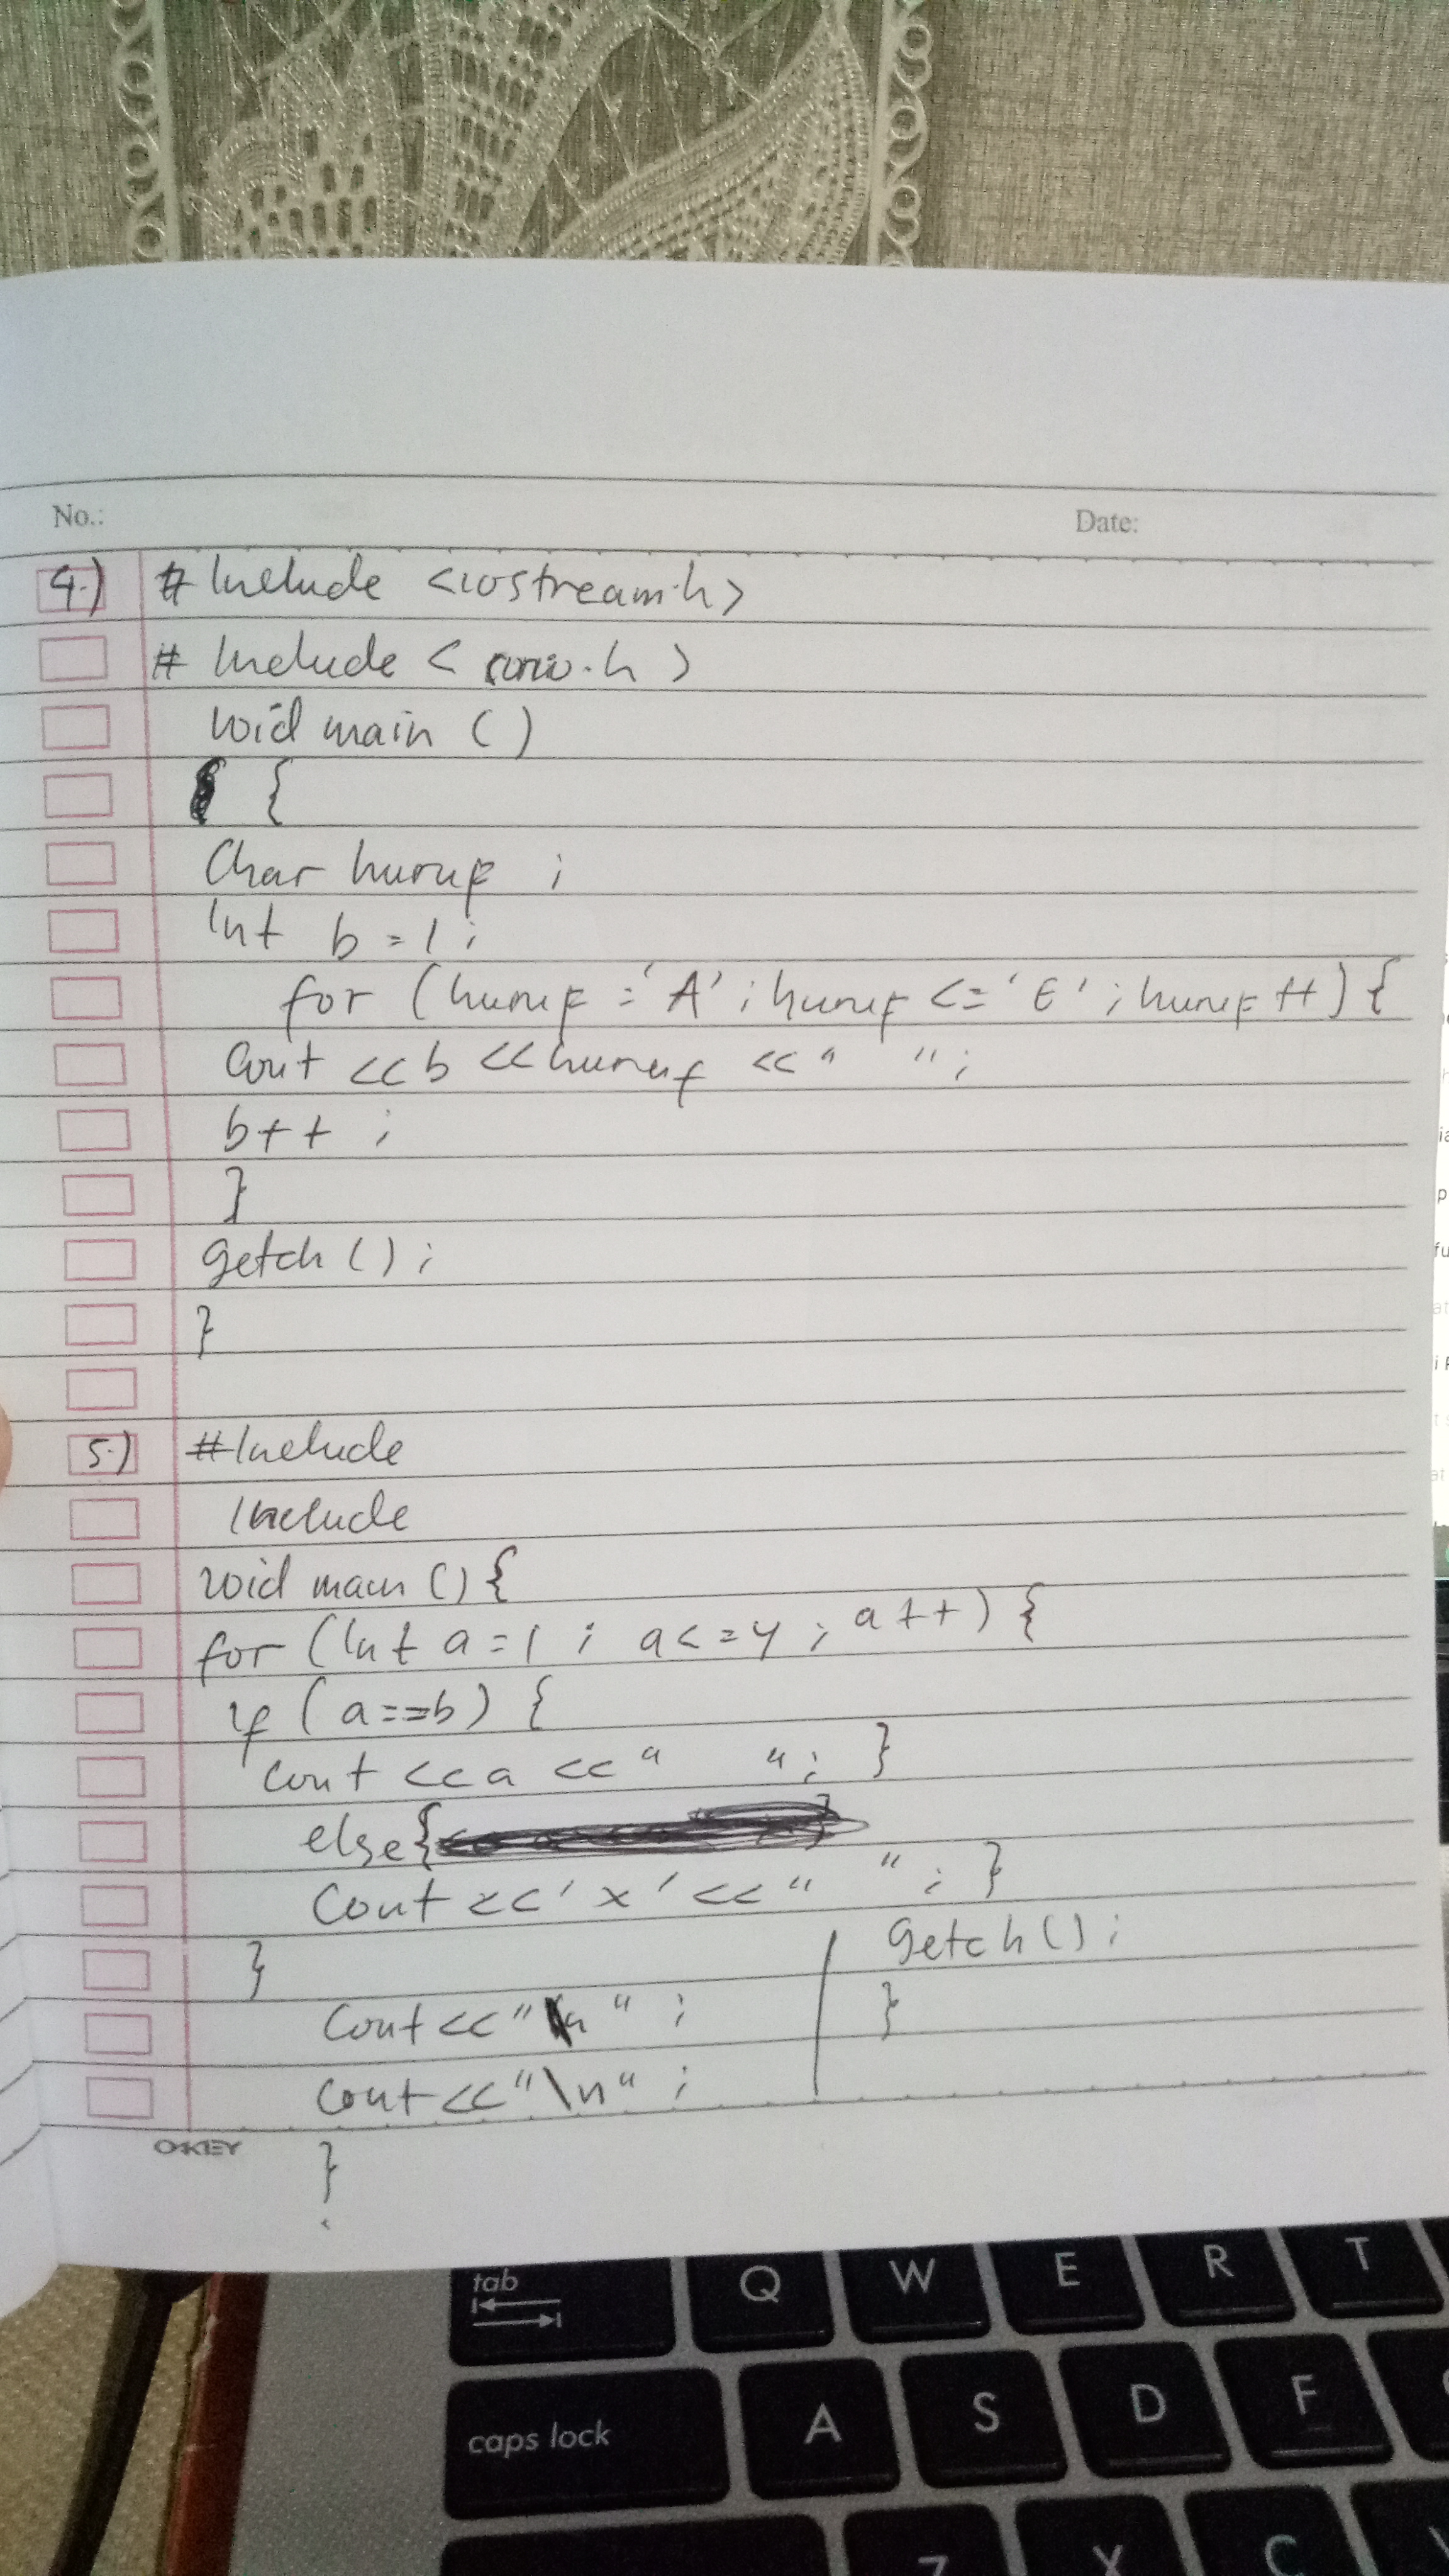 No.:
Date:
4.) # Include <iostream.h>
# Include < conio.h >
void main ()
{
Char huruf ;
Int b = 1 ;
for (huruf = 'A' ; huruf <= 'E' ; huruf ++) {
Cout << b << huruf << " " ;
b++ ;
}
getch () ;
}
5.) #Include
Include
void main () {
for (Int a = 1 ; a <= 4 ; a ++) {
if (a == b) {
Cout << a << " " ; }
else {
Cout << 'x' << " " ; }
}
Cout << " " ;
Cout << "\n" ;
}
getch () ;
}
OKEY
tab
Q W E R T
caps lock A S D F
Z X C